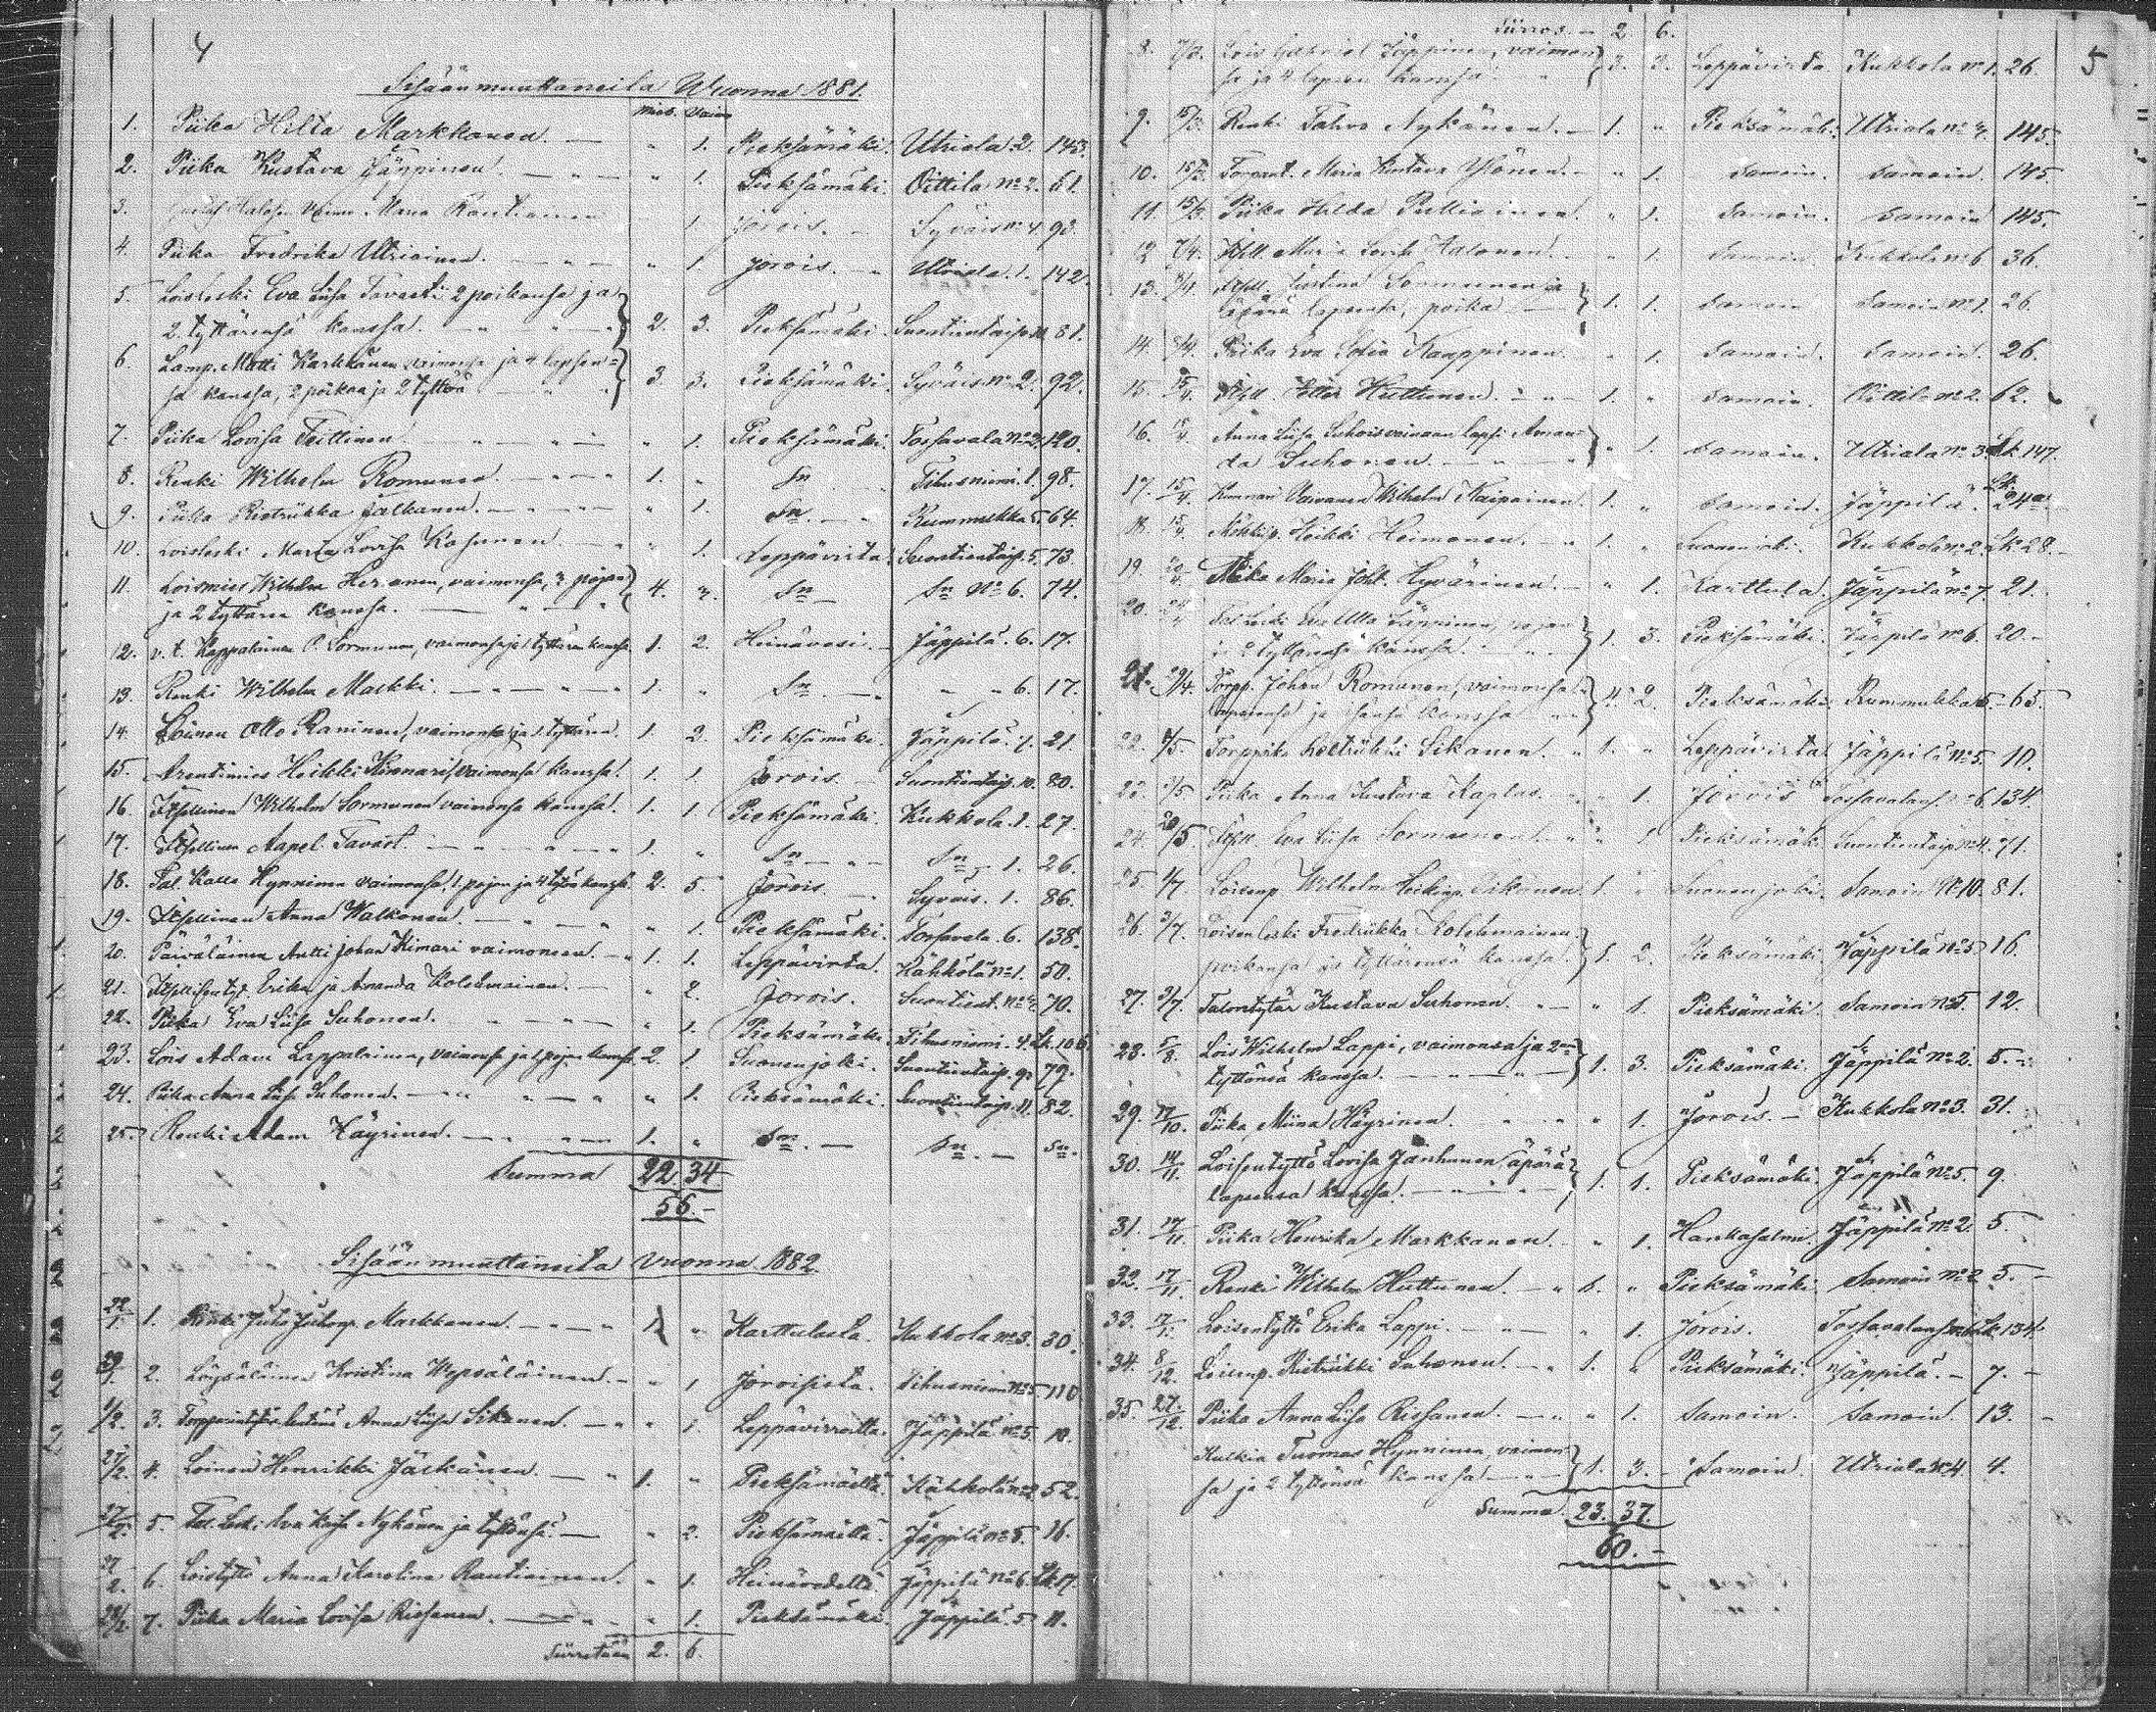 4
Sisäänmuuttaneita Wuonna 1881.
miesp. vaimop.
1. Piika Hilta Markkanen. — " 1. Pieksämäki. Utriala. 2. 143.
2. Piika Kustava Jäppinen. — " 1. Pieksämäki. Oittila No 2. 61.
3. Halosen Vaimo Maria Rautiainen 1. Jorois. Syväis No 4. 93.
4. Piika Fredrika Utriainen. — " 1. Jorois. Utriala. 1. 142.
5. Loisleski Eva Liisa Tavasti 2 poikansa ja
2. tyttärensä kanssa. — 2. 3. Pieksämäki. Suontientaip. 10. 81.
6. Lamp. Matti Karkkänen vaimonsa ja 4 lapsen-
sa kanssa, 2 poikaa ja 2 tyttöä 3. 3. Pieksämäki. Syväis No 2. 92.
7. Piika Lovisa Teittinen — " 1. Pieksämäki. Tossavala No 2. 120.
8. Renki Wilhelm Romunen. — 1. " Sn Tihusniemi. 1. 98.
9. Piika Ristriikka Jalkanen. — " 1. Sn. — Rummukka 5. 64.
10. Loisleski Maria Lovisa Kosunen — " 1. Leppävirta. Suontientaip. 5. 73.
11. Loismies Wilhelm Heranen, vaimonsa, 3 pojan
ja 2 tyttären kanssa. — 4. 3. Sn — Sn No 6. 74.
12. v. t. Kappalainen O. Sormunen, vaimonsa ja 1 tyttären kanssa. 1. 2. Heinävesi. Jäppilä. 6. 17.
13. Renki Wilhelm Markki. — 1. " Sn — " 6. 17.
14. Loinen Otto Raninen, vaimonsa ja 1 tyttären. 1. 2. Pieksämäki. Jäppilä. 7. 21.
15. Arentimies Heikki Kinnari vaimonsa kanssa. 1. 1. Jorois. Suontientaip. 10. 80.
16. Itsellinen Wilhelm Sormunen vaimonsa kanssa. 1. 1. Pieksämäki. Kukkola. 1. 27.
17. Itsellinen Aapel Tavast. — 1. " Sn — Sn 1. 26.
18. Tal. Kalle Hynninen vaimonsa, 1. pojan ja 4 tytön kanssa. 2. 5. Jorois. Syväis. 1. 86.
19. Itsellinen Anna Walkonen. — " 1. Pieksämäki. Tossavala. 6. 138.
20. Päiväläinen Antti Johan Kinnari vaimoneen. — 1. 1. Leppävirta. Kähkölä No 1. 50.
21. Itsellisentyt. Erika ja Amanda Kolehmainen. — " 2. Jorois. Suontient. No 4. 70.
22. Piika Eva Liisa Suhonen. — " 1. Pieksämäki. Tihusniemi. 4. Lk. 106.
23. Lois Adam Lappalainen, vaimonsa ja 1 pojan kanssa 2. 1. Suonenjoki. Suontientaip. 9. 79.
24. Piika Anna Liisa Suhonen. — " 1. Pieksämäki. Suontientaip. 11. 82.
25. Renki Adam Häyrinen. — 1. " Sn. — Sn. — Sn.
Summa 22. 34
56.-
Sisäänmuuttaneita vuonna 1882.
22/1. 1. Renki Juho Juhonp. Markkanen. — 1 " Karttulasta. Kukkola No 3. 30.
2. Löysäläinen Kristina Wepsäläinen. — " 1 Joroisista. Tihusniemi No 5. 110
1/2. 3. Anna Liisa Sikanen. — " 1. Leppävirroilta. Jäppilä No 5. 10.
27/2. 4. Loinen Henrikki Jäskänen. — 1. " Pieksämäeltä. Kähkölä No 2. 52.
27/2. 5. Tal. Leski Eva Kaisa Nykänen ja tyttönsä. — " 2. Pieksämäeltä. Jäppilä No 5. 16.
27/2. 6. Loistyttö Anna Karolina Rautiainen. " 1. Heinävedeltä. Jäppilä No 6. Lk. 17.
28/2. 7. Piika Maria Lovisa Rissanen. — " 1. Pieksämäki. Jäppilä. 5. 11.
Siirretään 2. 6.
5
Siirros. — 2 6.
8. 7/3. Lois Gabriel Jäppinen, vaimon
sa ja 4 lapsen kanssa. 3. 3. Leppävirta. Kukkola No 1. 26.
9. 15/3. Renki Tahvo Nykänen. — 1. " Pieksämäki. Utriala No 4. 145.
10. 15/3. Torpant. Maria Kustava Ylönen. — " 1. Samoin. Samoin. 145.
11. 15/3. Piika Hilda Pulliainen. " 1. Samoin. Samoin 145.
12 7/4. Itsell. Maria Lovisa Aalonen. " 1. Samoin. Kukkola No 6 36.
13. Itsell. Justina Sormunen ja
äpärä lapsensa, poika — 1. 1. Samoin Samoin No 1. 26.
14. 8/4. Piika Eva Sofia Kauppinen " 1. Samoin. Samoin. 26.
15. 15/4. Itsell. Petter Huttunen. — 1. " Samoin. Oittila No 2. 62.
16. 15/4. Anna Liisa Suhois vainaan lapsi Aman-
da Suhonen. — " 1. Samoin. Utriala No 3. Lk. 147.
17. 15/4. Kunnari Vaivanen Wilhelm Kaipainen. 1. " Samoin. Jäppilä. Lk. 24a.
18. 15/4. Mökkip. Heikki Heimonen. — 1. " Suonenjoki. Kukkola No 2 Lk 28.
19. 20/4. Piika Maria Joh. Hyvärinen. — " 1. Karttula. Jäppilä No 7. 21.
20. 24/4 Tal. Leski Eva Ulla Jäppinen, pojan
ja 2 tyttärensä kanssa. 1. 3. Pieksämäki. Jäppilä No 6. 20.-
21. 29/4. Torpp. Johan Romunen, vaimonsa
kanssa 4. 2. Pieksämäki Rummukka 5.- 65.
22. /5. Torppika Sikanen. 1. " Leppävirta. Jäppilä No 5. 10.
23. /5 Piika Anna Kustava Kaplas. " 1. Jorois Tossavalans. No 6. 134.
24. 20/5. Itsell. Eva Liisa Sormunen. " 1 Pieksämäki Suontientaip. No 4. 71.
25 1/7. Loisenp. Wilhelm Heikinp. Sikanen 1. " Suonenjoki. Samoin No 10. 81.
26. 3/7. Loisenleski Fredriikka Kolehmainen
poikansa ja tyttärensä kanssa. 1. 2. Pieksämäki. Jäppilä No 5 16.
27. 3/7. Talontytär Kustava Suhonen. " 1. Pieksämäki. Samoin No 5. 12.
28. 5/8. Lois Wilhelm Lappi, vaimonsa ja 2
tyttönsä kanssa. — 1. 3. Pieksämäki. Jäppilä No 2. 5.-
29. 17/10. Piika Miina Häyrinen. " 1. Jorois. — Kukkola No 3. 31.
30. 14/11. Loisentyttö Lovisa Janhunen, äpärä
lapsensa kanssa. — 1. 1. Pieksämäki. Jäppilä No 5. 9.
31. 17/11. Piika Henrika Markkanen. " 1. Hankasalmi. Jäppilä No 2. 5.
32. 17/11. Renki Wilhelm Huttunen. — 1. " Pieksämäki. Samoin No 2 5.
33. Loisentyttö Erika Lappi. — " 1. Jorois. Tossavalans. Lk. 134.
34. 8/12. Loisenp. Ristriikki Suhonen. — 1. " Pieksämäki. Jäppilä. — 7. —
35. 27/12. Piika Anna Liisa Rissanen. — " 1. Samoin. Samoin. 13. —
Mulkia Tuomas Hynninen, vaimon-
sa ja 2 tyttönsä kanssa 1. 3. Samoin. Utriala No 4 4.
Summa. 23. 37.
60.-